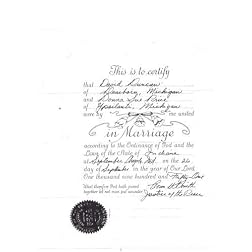 This is to certify
that David Duncan
of Dearborn, Michigan
and Donna Sue Price
of Ypsilanti, Michigan
were by me united
in Marriage
according to the Ordinance of God and the
Laws of the State of Indiana
at Angola Ind. on the 26
day of September in the year of Our Lord
One thousand nine hundred and Fifty
What therefore God hath joined
together let not man put asunder
Justice of the Peace